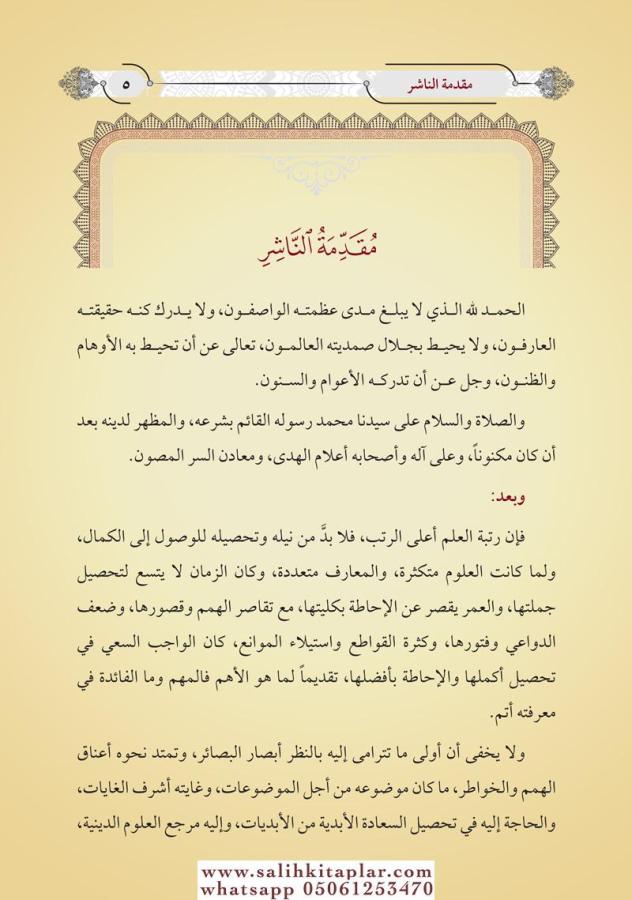 مقدمة الناشر
٥
مُقَدِّمَةُ ٱلنَّاشِرِ
الحمـد لله الـذي لا يبلـغ مـدى عظمتـه الواصفـون، ولا يـدرك كنـه حقيقتـه
العارفـون، ولا يحيـط بجـلال صمديته العالمـون، تعالى عن أن تحيـط به الأوهام
والظنـون، وجل عـن أن تدركـه الأعوام والسـنون.
والصلاة والسلام على سيدنا محمد رسوله القائم بشرعه، والمظهر لدينه بعد
أن كان مكنوناً، وعلى آله وأصحابه أعلام الهدى، ومعادن السر المصون.
وبعد:
فإن رتبة العلم أعلى الرتب، فلا بدَّ من نيله وتحصيله للوصول إلى الكمال،
ولما كانت العلوم متكثرة، والمعارف متعددة، وكان الزمان لا يتسع لتحصيل
جملتها، والعمر يقصر عن الإحاطة بكليتها، مع تقاصر الهمم وقصورها، وضعف
الدواعي وفتورها، وكثرة القواطع واستيلاء الموانع، كان الواجب السعي في
تحصيل أكملها والإحاطة بأفضلها، تقديماً لما هو الأهم فالمهم وما الفائدة في
معرفته أتم.
ولا يخفى أن أولى ما تترامى إليه بالنظر أبصار البصائر، وتمتد نحوه أعناق
الهمم والخواطر، ما كان موضوعه من أجل الموضوعات، وغايته أشرف الغايات،
والحاجة إليه في تحصيل السعادة الأبدية من الأبديات، وإليه مرجع العلوم الدينية،
www.salihkitaplar.com
whatsapp 05061253470